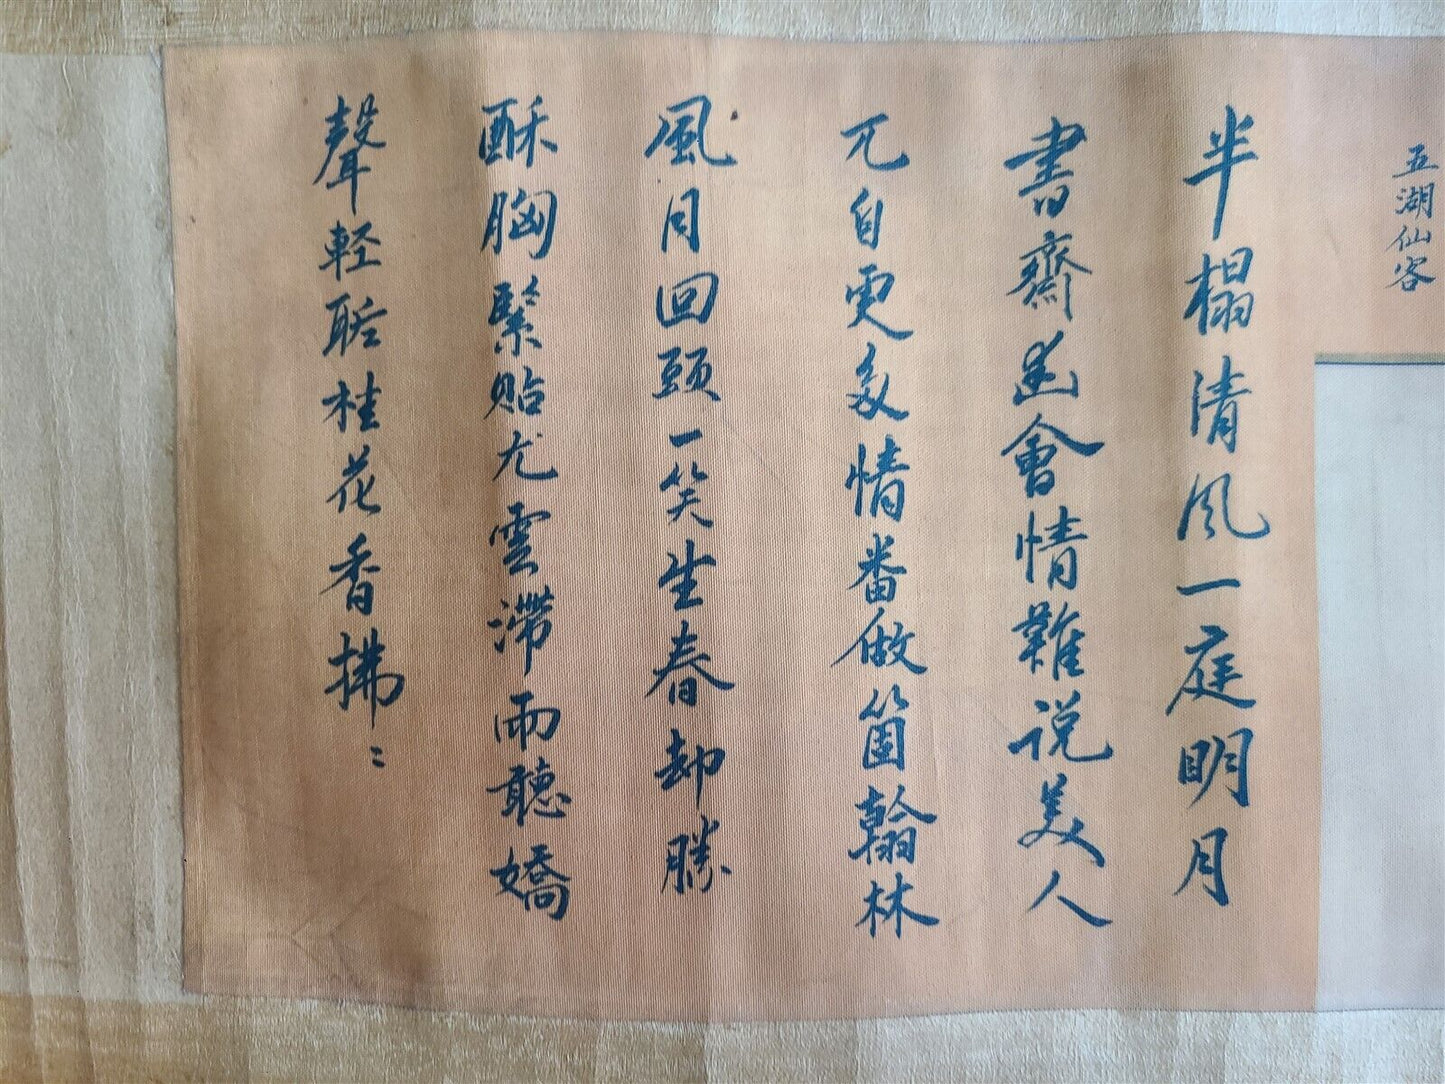 五湖仙客
半榻清风一庭明月
書齋幽會情難说美人
兀自更多情番做箇翰林
風月回頭一笑生春却勝
酥胸緊貼尤雲滯雨聽嬌
聲輕聒桂花香拂〻